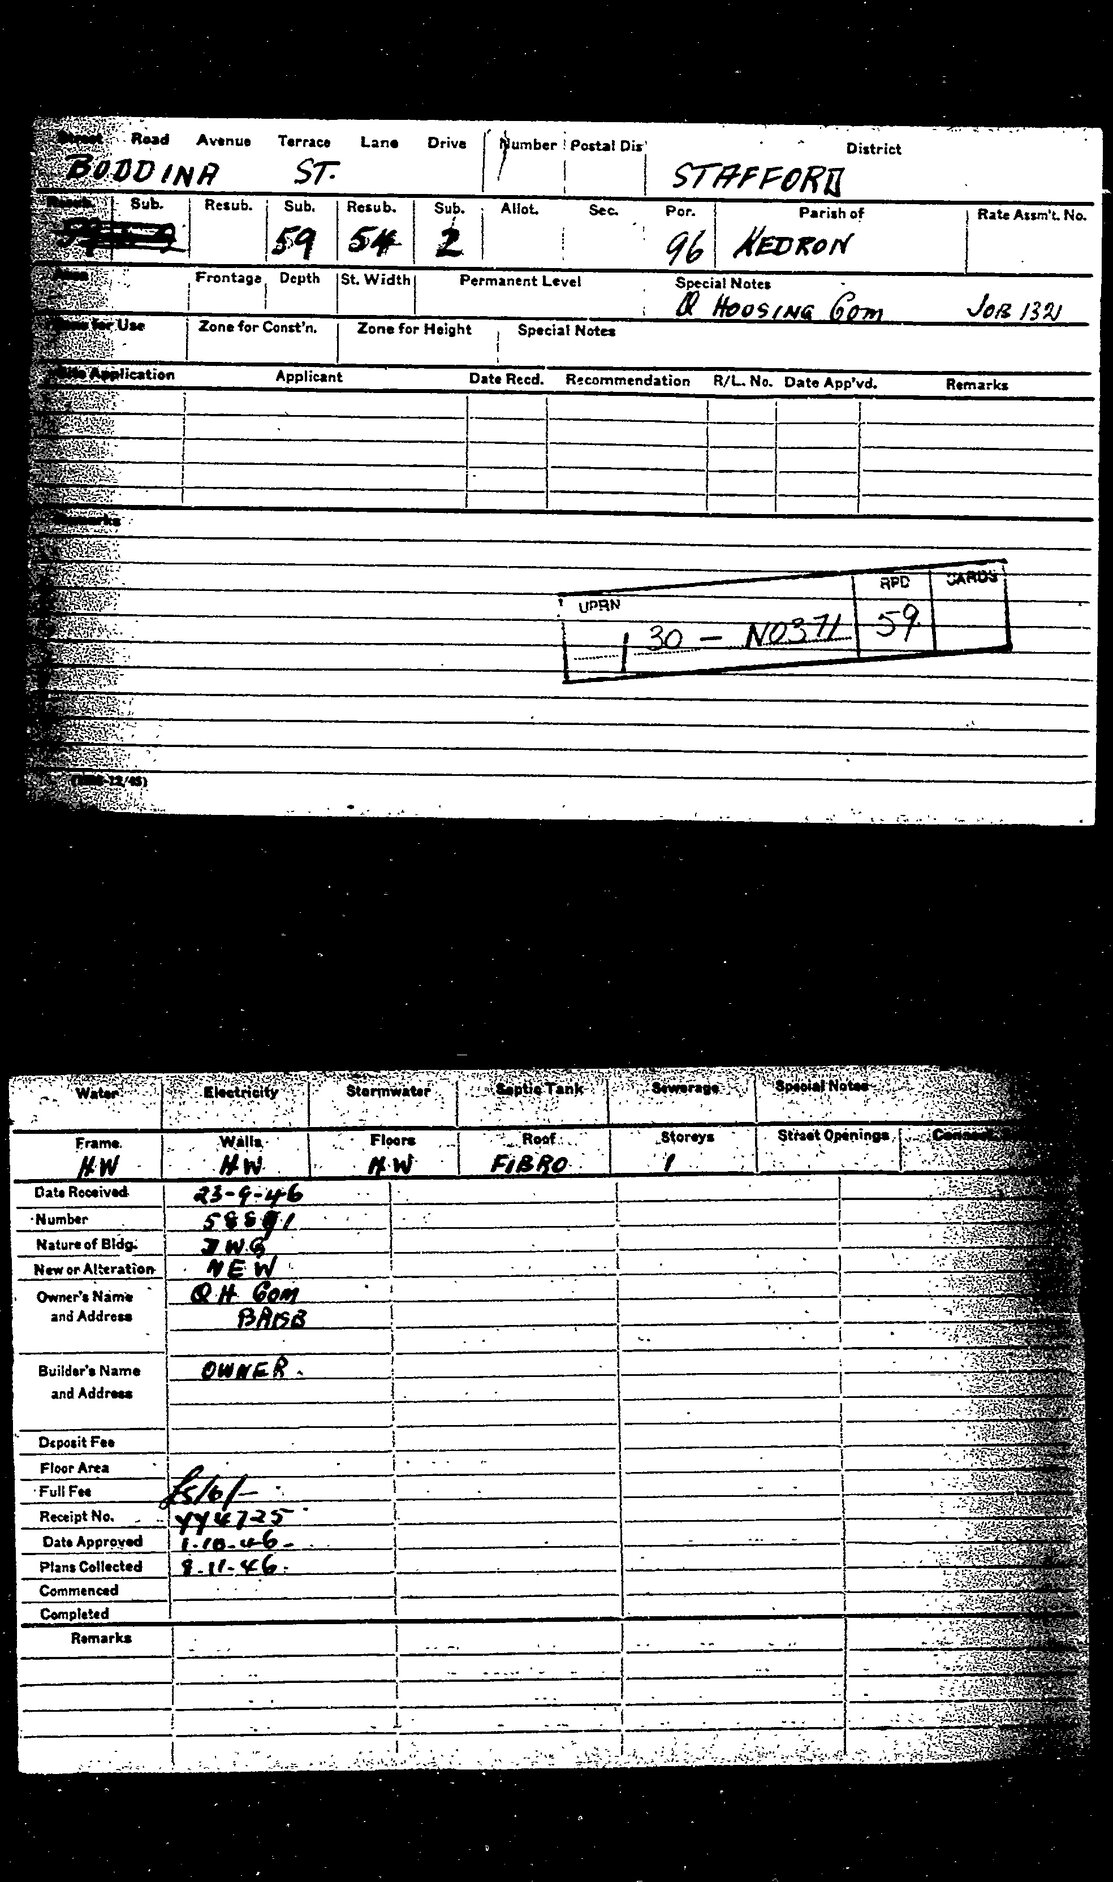 Street Road Avenue Terrace Lane Drive Number Postal Dis' District
BODDINA ST. STAFFORD
Resub. Sub. Resub. Sub. Resub. Sub. Allot. Sec. Por. Parish of Rate Assm't. No.
59 54 2 96 KEDRON
Area Frontage Depth St. Width Permanent Level Special Notes
Q HOUSING COM JOB 1321
Zone for Use Zone for Const'n. Zone for Height Special Notes
Site Application Applicant Date Recd. Recommendation R/L. No. Date App'vd. Remarks
Remarks
UPRN RPD CARDS
130 - N0371 59
Water Electricity Stormwater Septic Tank Sewerage Special Notes
Frame Walls Floors Roof Storeys Street Openings
H.W H.W H.W FIBRO 1
Date Received 23-9-46
Number
Nature of Bldg. DWG
New or Alteration NEW
Owner's Name Q H COM
and Address BRISB
Builder's Name OWNER.
and Address
Deposit Fee
Floor Area
Full Fee £5/6/-
Receipt No. YY4725
Date Approved 1-10-46-
Plans Collected 8-11-46.
Commenced
Completed
Remarks